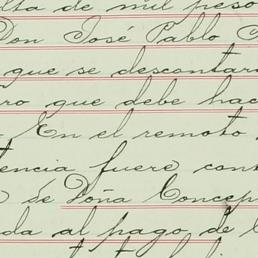 lta de mil peso
Don José Pablo
que se descontar
ro que debe hac
En el remoto
tencia fuere cont
de Doña Concep
da al pago de l